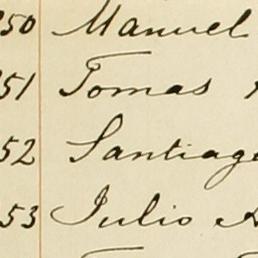 250 Manuel
251 Tomas
252 Santiago
253 Julio A